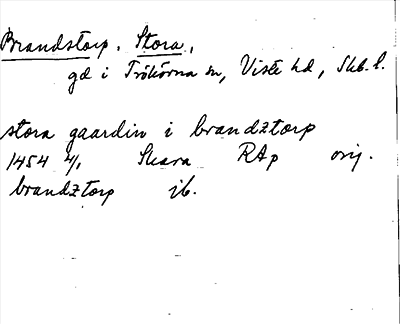 Brandstorp. Stora,
gd i Trökörna sn, Viste hd, Skb. l.
stora gaardin i brandztorp
1454 4/1 Skara RAp orig.
brandztorp ib.